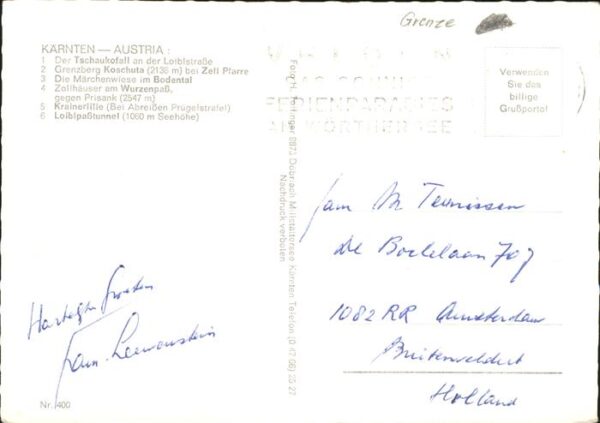 Grenze
KÄRNTEN — AUSTRIA :
1 Der Tschaukofall an der Loiblstraße
2 Grenzberg Koschuta (2136 m) bei Zell Pfarre
3 Die Märchenwiese im Bodental
4 Zollhäuser am Wurzenpaß,
gegen Prisank (2547 m)
5 Krainerlilie (Bei Abreißen Prügelstrafe!)
6 Loiblpaßtunnel (1060 m Seehöhe)
FERIENPARADIES
AM WÖRTHERSEE
Verwenden
Sie das
billige
Grußporto!
9873 Döbriach Millstättersee Kärnten Telefon (0 47 66) 25 27
Nachdruck verboten
Fam M Teunissen
De Boelelaan
1082 RR Amsterdam
Buitenveldert
Holland
Hartelijke Groeten
Fam. Leewenstein
Nr. 400